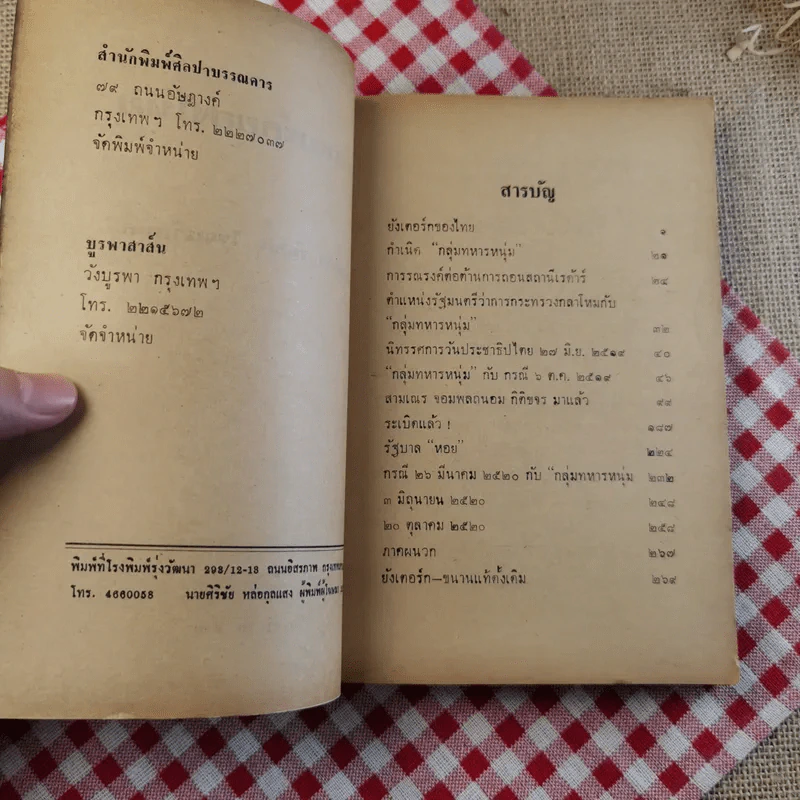 สำนักพิมพ์ศิลปาบรรณาคาร
๗๙ ถนนอัษฎางค์
กรุงเทพฯ โทร. ๒๒๒๗๐๓๗
จัดพิมพ์จำหน่าย
บูรพาสาส์น
วังบูรพา กรุงเทพฯ
โทร. ๒๒๑๕๖๗๒
จัดจำหน่าย
พิมพ์ที่โรงพิมพ์รุ่งวัฒนา 298/12-13 ถนนอิสรภาพ
โทร. 4660058 นายศิริชัย หล่อกุลแสง ผู้พิมพ์ผู้โฆษณา
สารบัญ
ยังเตอร์กของไทย ๑
กำเนิด "กลุ่มทหารหนุ่ม" ๒๑
การรณรงค์ต่อต้านการถอนสถานีเรด้าร์ ๒๔
ตำแหน่งรัฐมนตรีว่าการกระทรวงกลาโหมกับ
"กลุ่มทหารหนุ่ม" ๓๒
นิทรรศการวันประชาธิปไตย ๒๗ มิ.ย. ๒๕๑๙ ๔๐
"กลุ่มทหารหนุ่ม" กับ กรณี ๖ ต.ค. ๒๕๑๙ ๔๖
สามเณร จอมพลถนอม กิติขจร มาแล้ว ๙๔
ระเบิดแล้ว ! ๑๘๗
รัฐบาล "หอย" ๒๒๔
กรณี ๒๖ มีนาคม ๒๕๒๐ กับ "กลุ่มทหารหนุ่ม ๒๓๒
๓ มิถุนายน ๒๕๒๐ ๒๔๘
๒๐ ตุลาคม ๒๕๒๐ ๒๕๘
ภาคผนวก ๒๖๗
ยังเตอร์ก—ขนานแท้ดั้งเดิม ๒๖๙